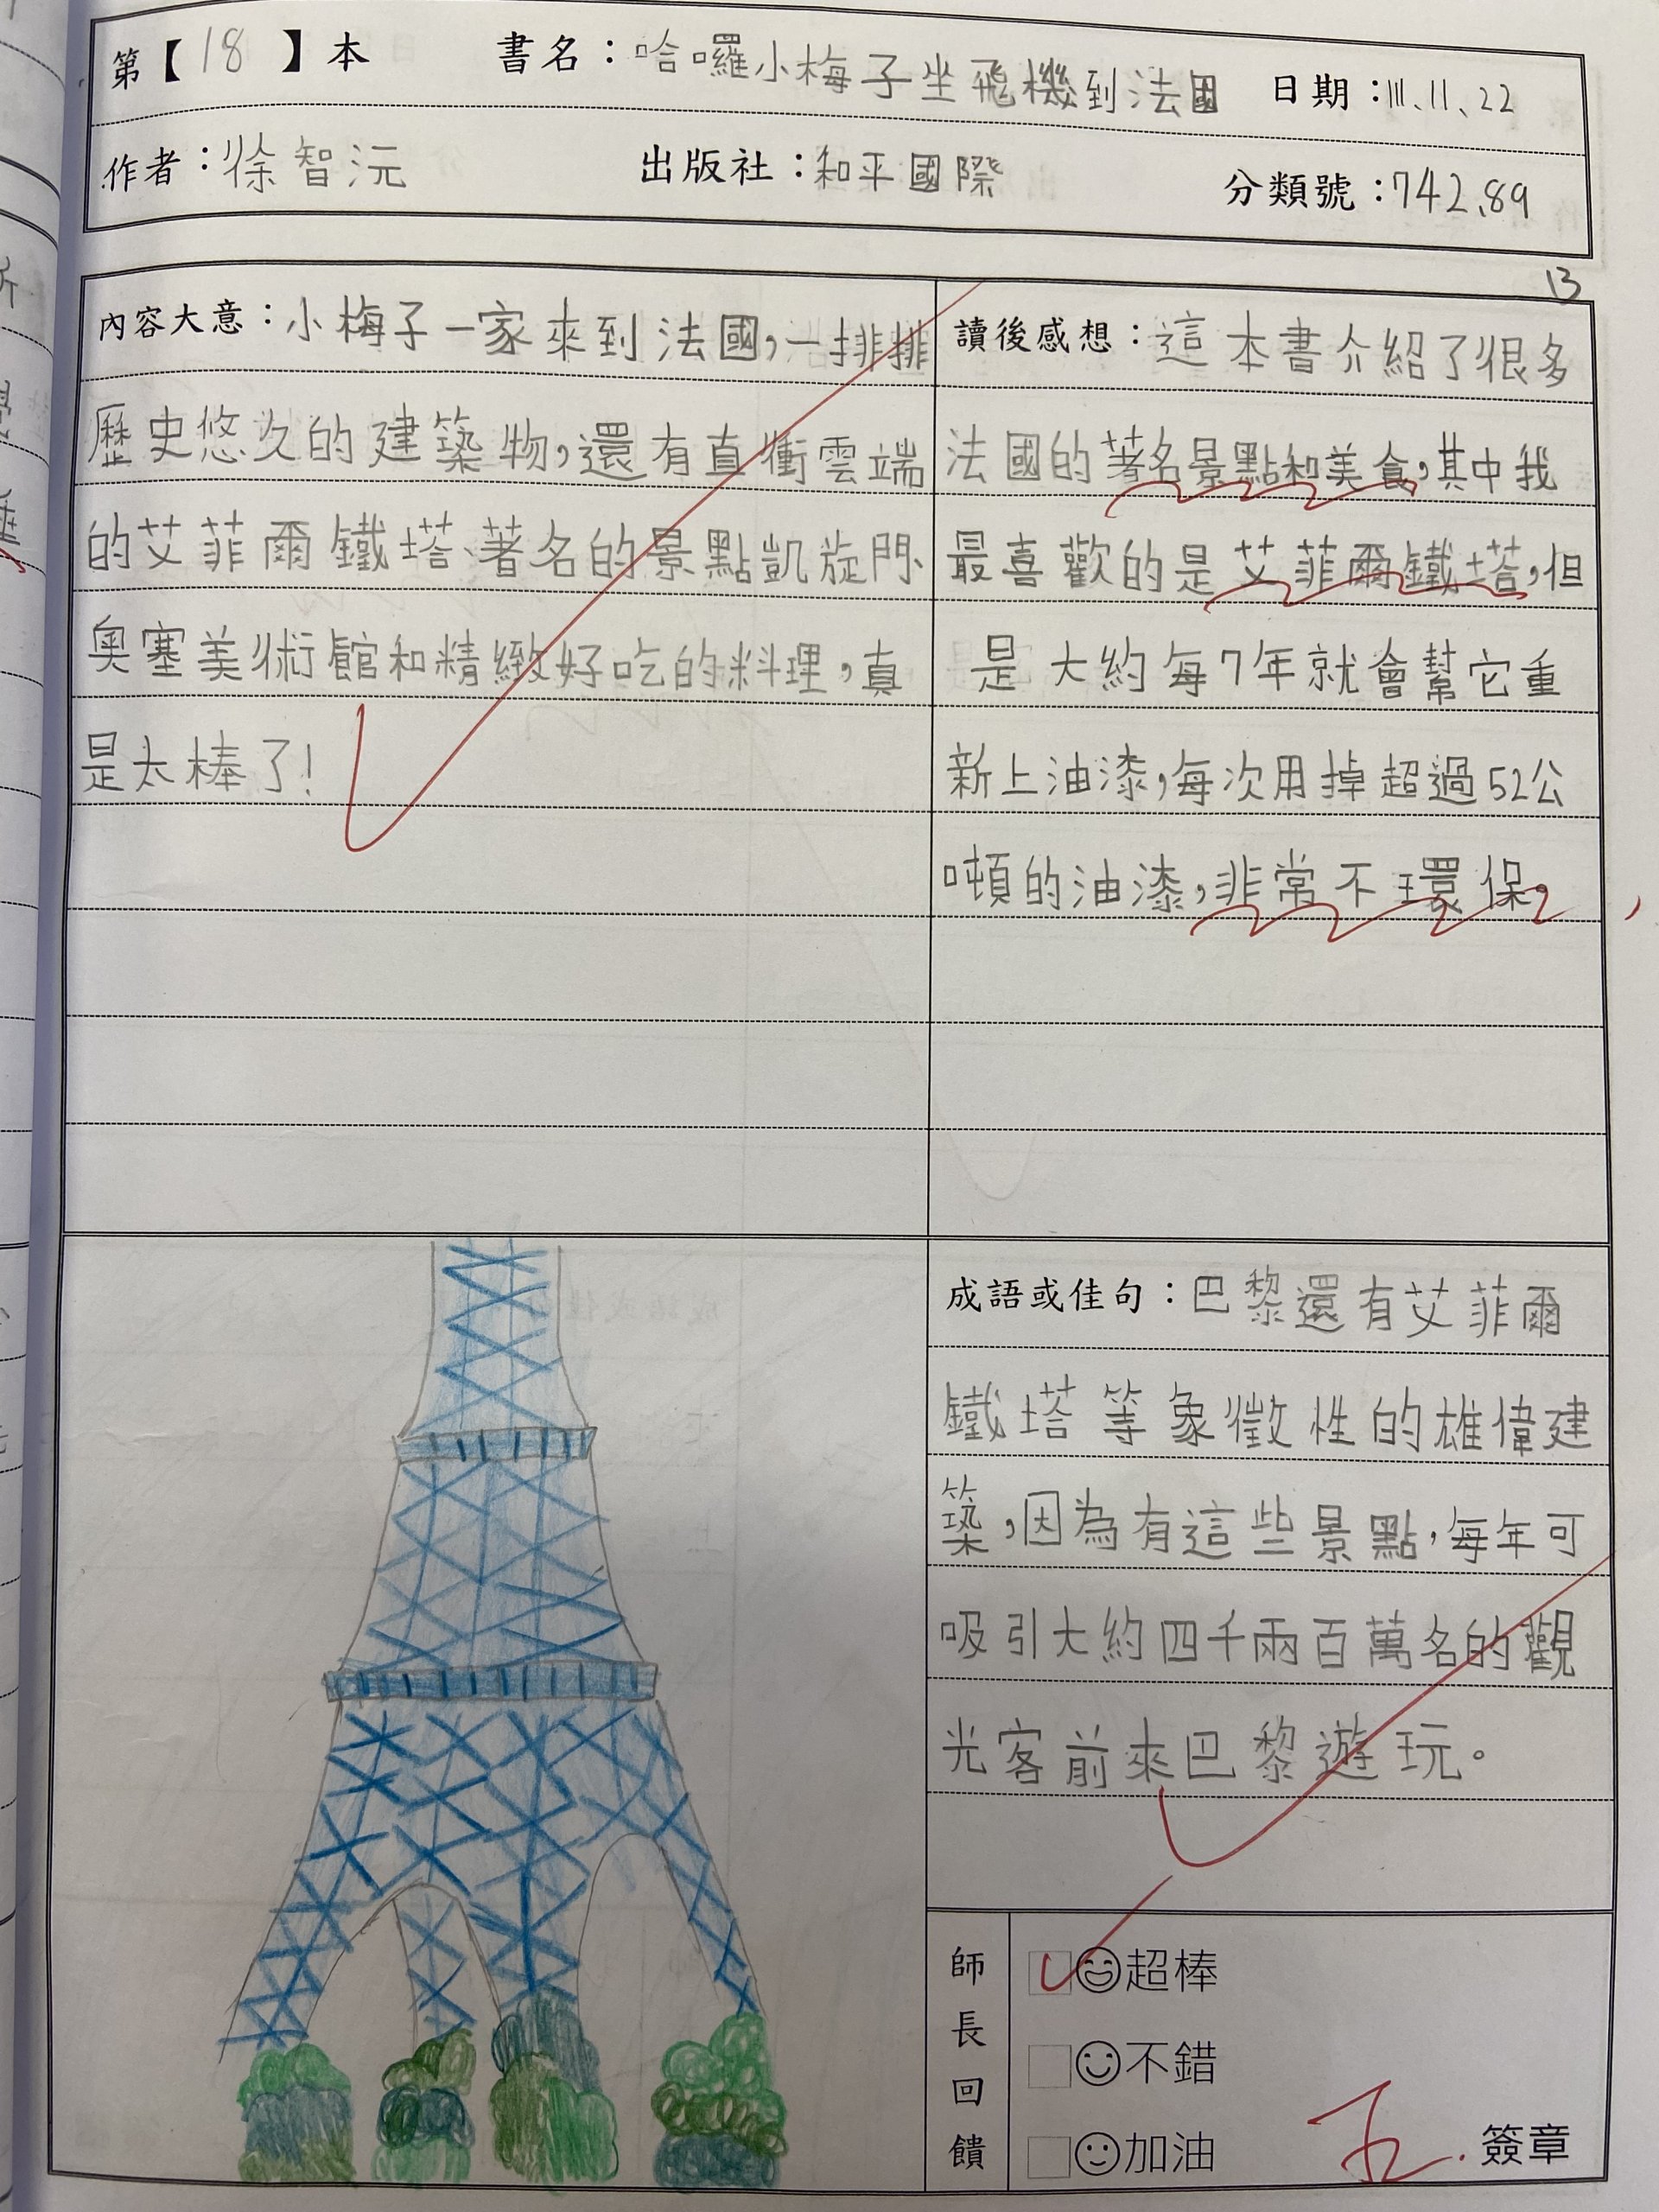 第【18】本 書名：哈囉小梅子坐飛機到法國 日期：111.11.22
作者：徐智沅 出版社：和平國際 分類號：742.89
13
內容大意：小梅子一家來到法國，一排排
歷史悠久的建築物，還有直衝雲端
的艾菲爾鐵塔、著名的景點凱旋門、
奧塞美術館和精緻好吃的料理，真
是太棒了！
讀後感想：這本書介紹了很多
法國的著名景點和美食，其中我
最喜歡的是艾菲爾鐵塔，但
是大約每7年就會幫它重
新上油漆，每次用掉超過52公
噸的油漆，非常不環保。
成語或佳句：巴黎還有艾菲爾
鐵塔等象徵性的雄偉建
築，因為有這些景點，每年可
吸引大約四千兩百萬名的觀
光客前來巴黎遊玩。
師長回饋
超棒
不錯
加油
簽章